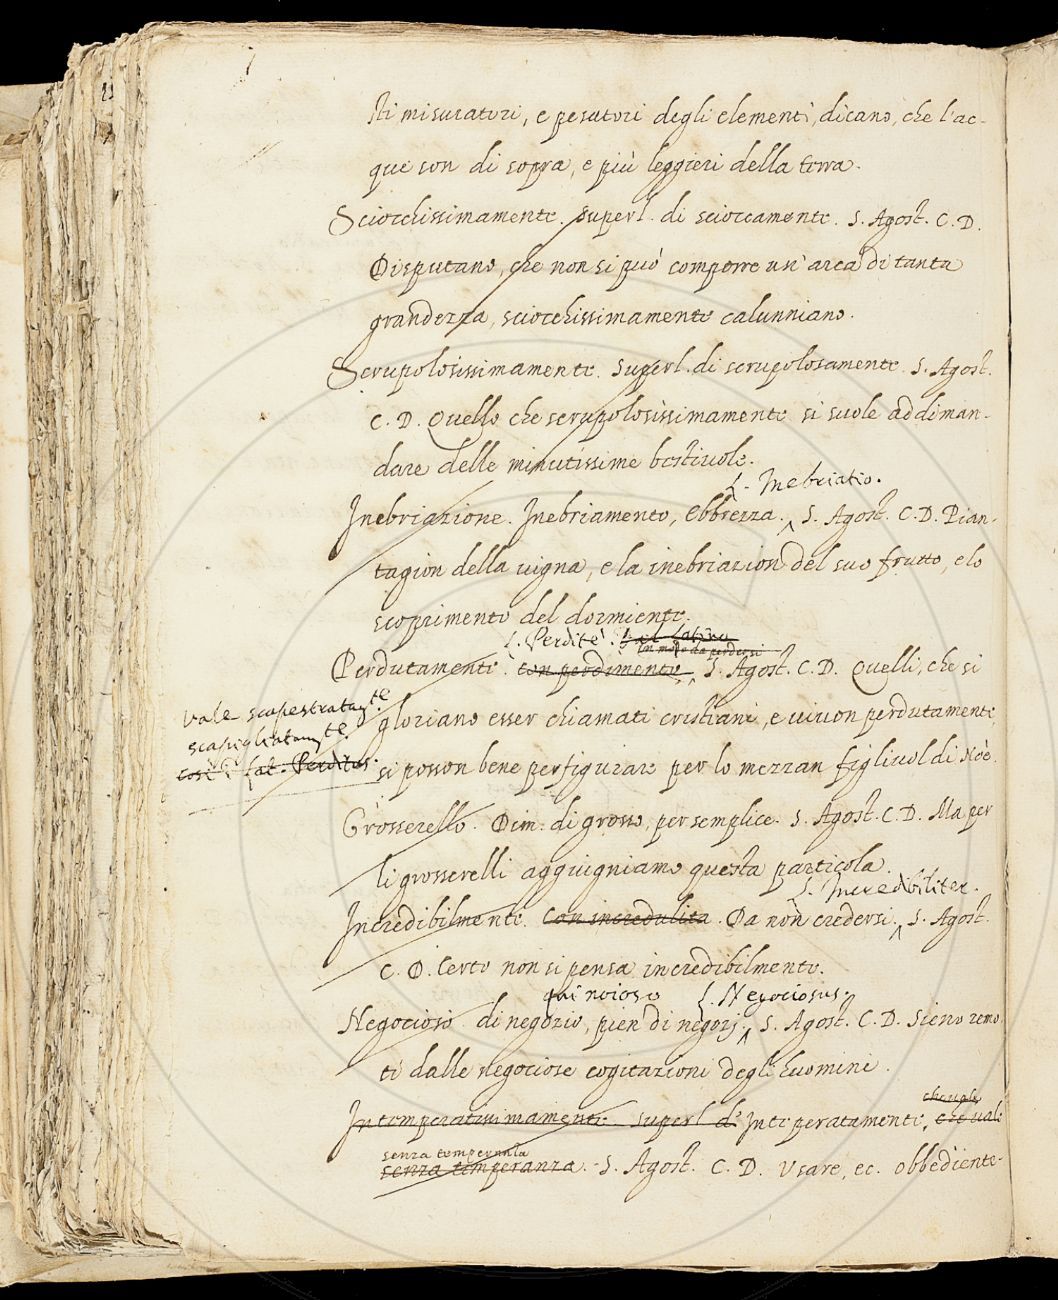 sti misuratori, e pesatori degli elementi, dicano, che l'ac-
que son di sopra, e più leggieri della terra.
Sciocchissimamente. superl. di scioccamente. S. Agost. C. D.
Disputano, che non si può comporre un'arca di tanta
grandezza, sciocchissimamente calunniano.
Scrupolosissimamente. superl. di scrupolosamente. S. Agost.
C. D. Quello che scrupolosissimamente si suole addiman-
dare delle minutissime bestiuole.
L. Inebriatio.
Inebriazione. Inebriamento, Ebbrezza. S. Agost. C. D. Pian-
tagion della vigna, e la inebriazion del suo frutto, e lo
scoprimento del dormiente.
L. Perditè. Lat.
in modo da perdersi
Perdutamente. con perdimento. S. Agost. C. D. Quelli, che si
vale scapestratam.te
gloriano esser chiamati cristiani, e vivon perdutamente,
scapigliatam.te
così Lat. Perditus.
si posson bene perfigurare per lo mezzan figliuol di Noè.
Grosserello. Dim. di grosso, per semplice. S. Agost. C. D. Ma per
li grosserelli aggiugniamo questa particola.
L. Incredibiliter.
Incredibilmente. Con incredulità. Da non credersi. S. Agost.
C. D. Certo non si pensa incredibilmente.
qui noioso L. Negociosus.
Negocioso. di negozio, pien di negozj. S. Agost. C. D. Sieno remo-
ti dalle negociose cogitazioni degli huomini.
che vale
Intemperatissimamente superl. d' Intemperatamente, che vale
senza temperanza
senza temperanza. S. Agost. C. D. Usare, ec. obbediente-